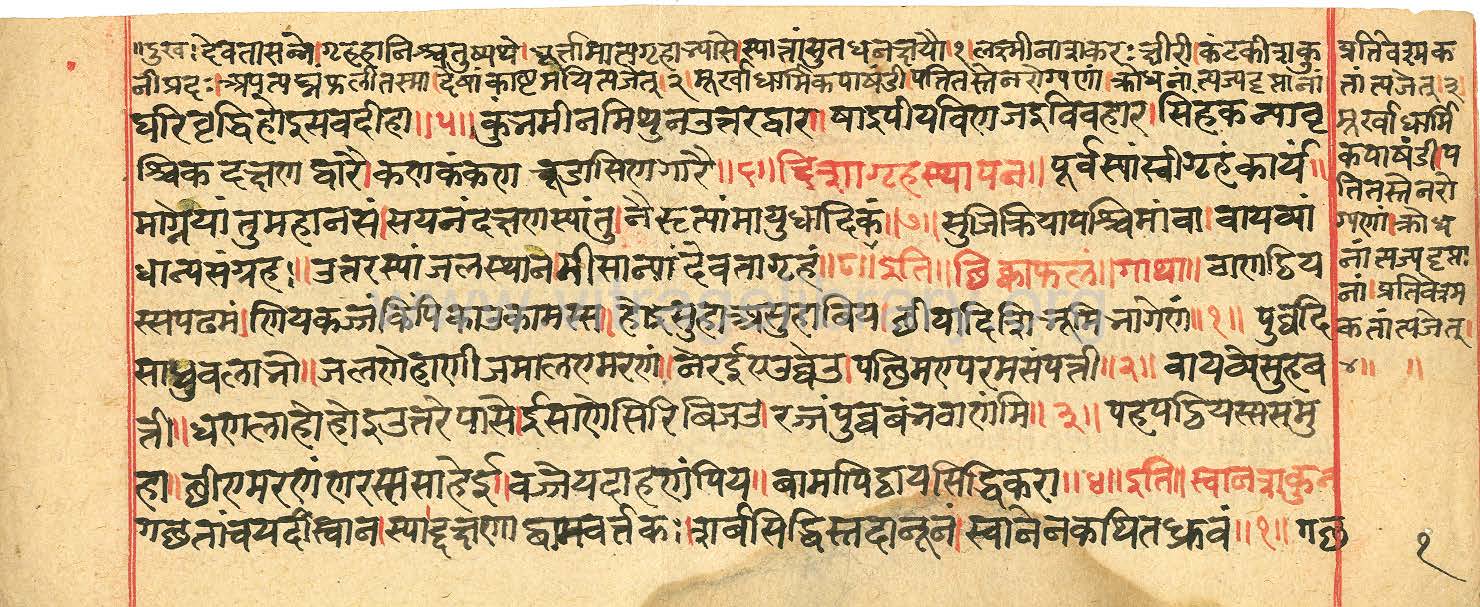 ॥दुखः।देवतासन्ने।गृहहानिश्चतुष्पथे।धूर्त्तामात्पगृहाभ्यासे।स्यातांसुतधनक्षयौ॥१।लक्ष्मीनाशकरःक्षीरी।कंटकीशत्रु
नीप्रदः।अपत्यघ्नःफलीतस्मा।देषांकाष्टमपित्यजेत्।२।मूर्खाधार्मिकपाषंडी।पतितस्तेनरोगिणां।क्रोधनांत्यजदृप्तानां
घरि वृद्धि होइ सवदीहा॥५॥ कुंनमीनमिथुनउत्तरद्वारा षाइपीयविणजइविवहार।सिंहकन्यावृ
श्चिकदक्षणद्वारै।कणकंकणचूडासिणगारै॥६॥दिशागृहस्थापन॥पूर्वस्यांस्त्रीगृहंकार्यं॥
माग्नेयांतुमहानसं।सयनंदक्षणस्यांतु।नैरृत्यांमायुधादिकं॥७॥भुजिक्रियापश्चिमांवा।वायव्यां
धान्यसंग्रहः॥उत्तरस्यांजलस्थान।मीसान्यांदेवतागृहं॥८॥इति॥छिक्काफलं॥गाथा॥वाणठिय
स्सपढमं।णियकज्जंकिंपिकाउकामस्स।होइसुहाअसुहाविय।छीयादिसिभूमिभागेणं॥१॥पुव्वदि
साधुवलाभो॥जलणेहाणीजमालएमरणं।नेरईएउव्वेउ।पछिमएपरमसंपत्ती॥२॥वायव्वेसुहव
त्ती॥धणलाहोहोइउत्तरेपासे।ईसाणेसिरिविजउ।रज्जंपुव्वबंनवाणंमि॥३॥पहपठियस्ससमु
हा॥छीएमरणंणरस्ससाहेई।वज्जेयदाहणंपिय॥वामापिठायसिद्धिकरा॥४॥इति॥स्वानशकुन
गछतांचयदीस्वान।स्यादक्षणाद्वामवर्त्तकः।शर्वसिद्धिस्तदानूनं।स्वानेनकथितंध्रुवं॥१॥गछ
प्रतिवेश्मक
तांत्यजेत्।३।
मूर्खाधार्मि
कपाषंडी।प
तितस्तेनरो
गिणां।क्रोध
नांत्यजदृप्ता
नां।प्रतिवेश्म
कतांत्यजेत्।
४॥ ॥
१
www.vitragelibrary.org